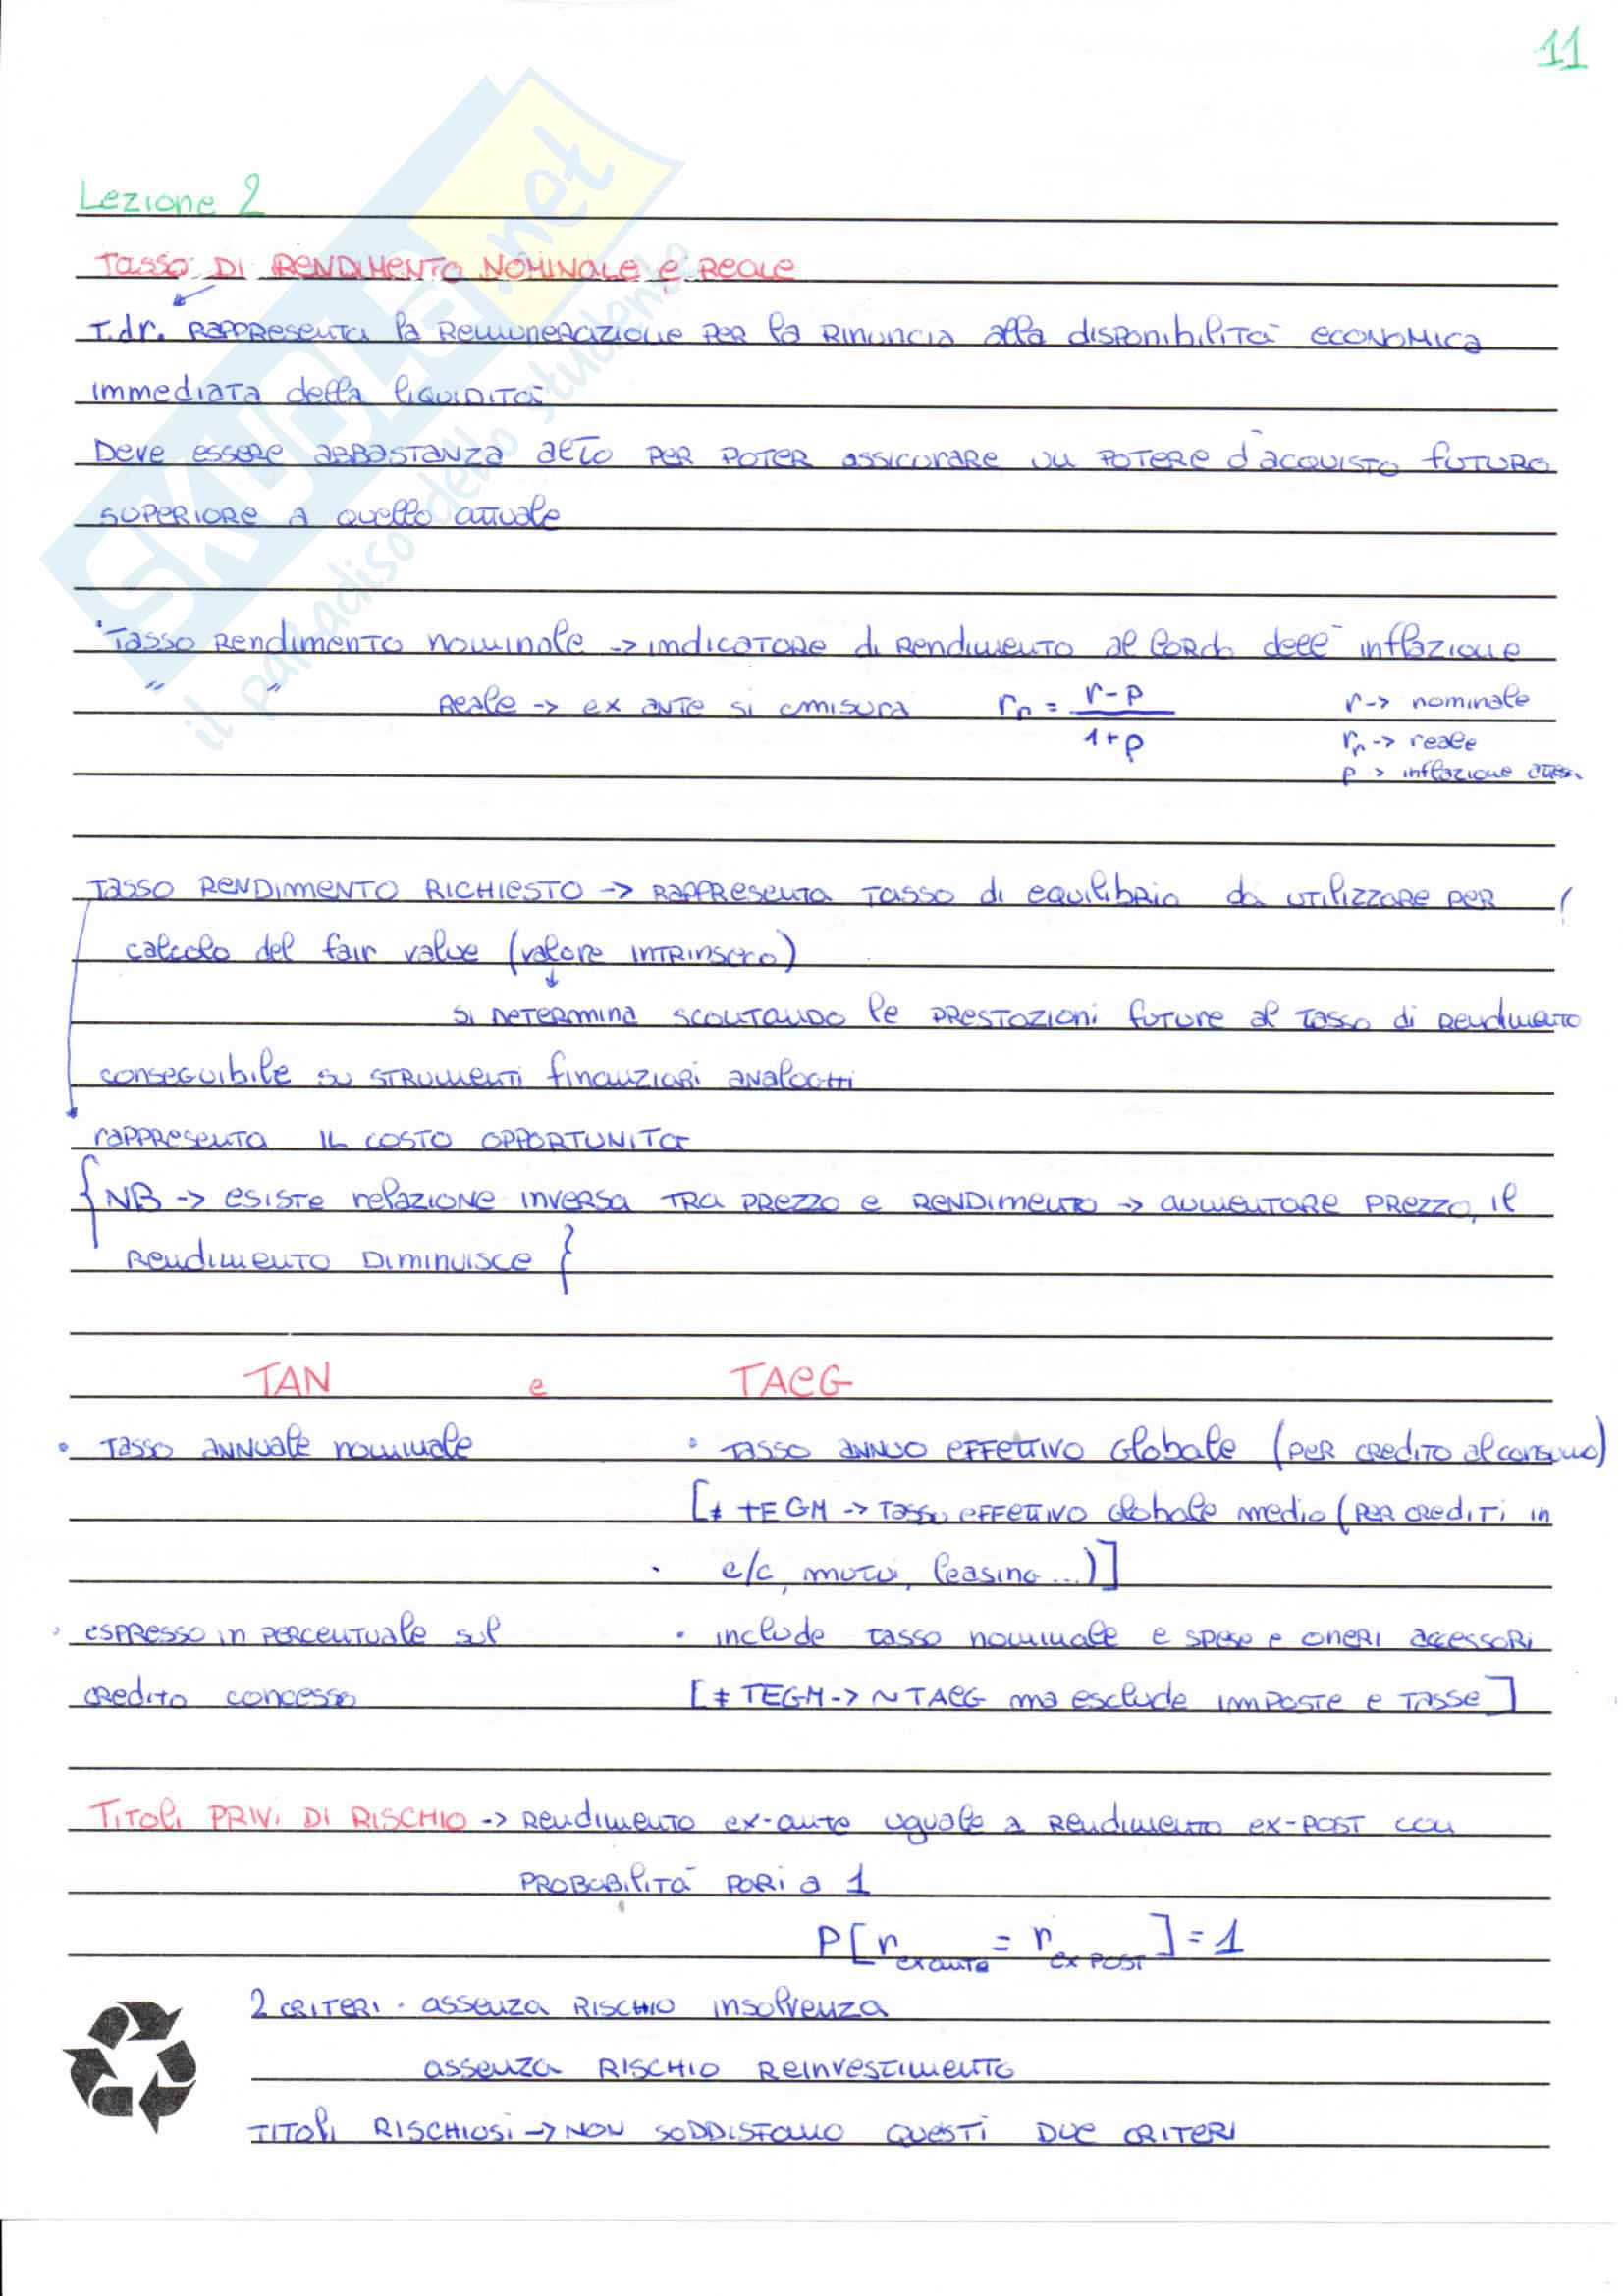 11
Lezione 2
TASSO DI RENDIMENTO NOMINALE E REALE
T.d.r. RAPPRESENTA la REMUNERAZIONE PER la RINUNCIA alla disponibilità ECONOMICA
immediata della liquidità
Deve essere abbastanza alto per poter assicurare un potere d'acquisto futuro
superiore a quello attuale
Tasso Rendimento nominale -> indicatore di rendimento al lordo dell'inflazione
" " Reale -> ex ante si misura rr = r-p / 1+p r -> nominale
rr -> reale
p -> inflazione attesa
Tasso RENDIMENTO RICHIESTO -> RAPPRESENTA TASSO di equilibrio da utilizzare per
calcolo del fair value (valore intrinseco)
si determina scontando le prestazioni future al tasso di rendimento
conseguibile su strumenti finanziari analoghi
rappresenta IL COSTO OPPORTUNITà
{NB -> esiste relazione inversa tra prezzo e rendimento -> aumentare prezzo, il
rendimento diminuisce}
TAN e TAEG
• Tasso annuale nominale • Tasso annuo effettivo globale (per credito al consumo)
[≠ TEGM -> Tasso effettivo globale medio (per crediti in
c/c, mutui, leasing...)]
• espresso in percentuale sul • include tasso nominale e spese e oneri accessori
credito concesso [≠ TEGM -> ~ TAEG ma esclude imposte e tasse]
Titoli PRIVI DI RISCHIO -> Rendimento ex-ante uguale a rendimento ex-post con
probabilità pari a 1
P[r ex ante = r ex post] = 1
2 criteri • assenza rischio insolvenza
assenza rischio reinvestimento
Titoli rischiosi -> non soddisfano questi due criteri
SKUOLA.net
il paradiso dello studente